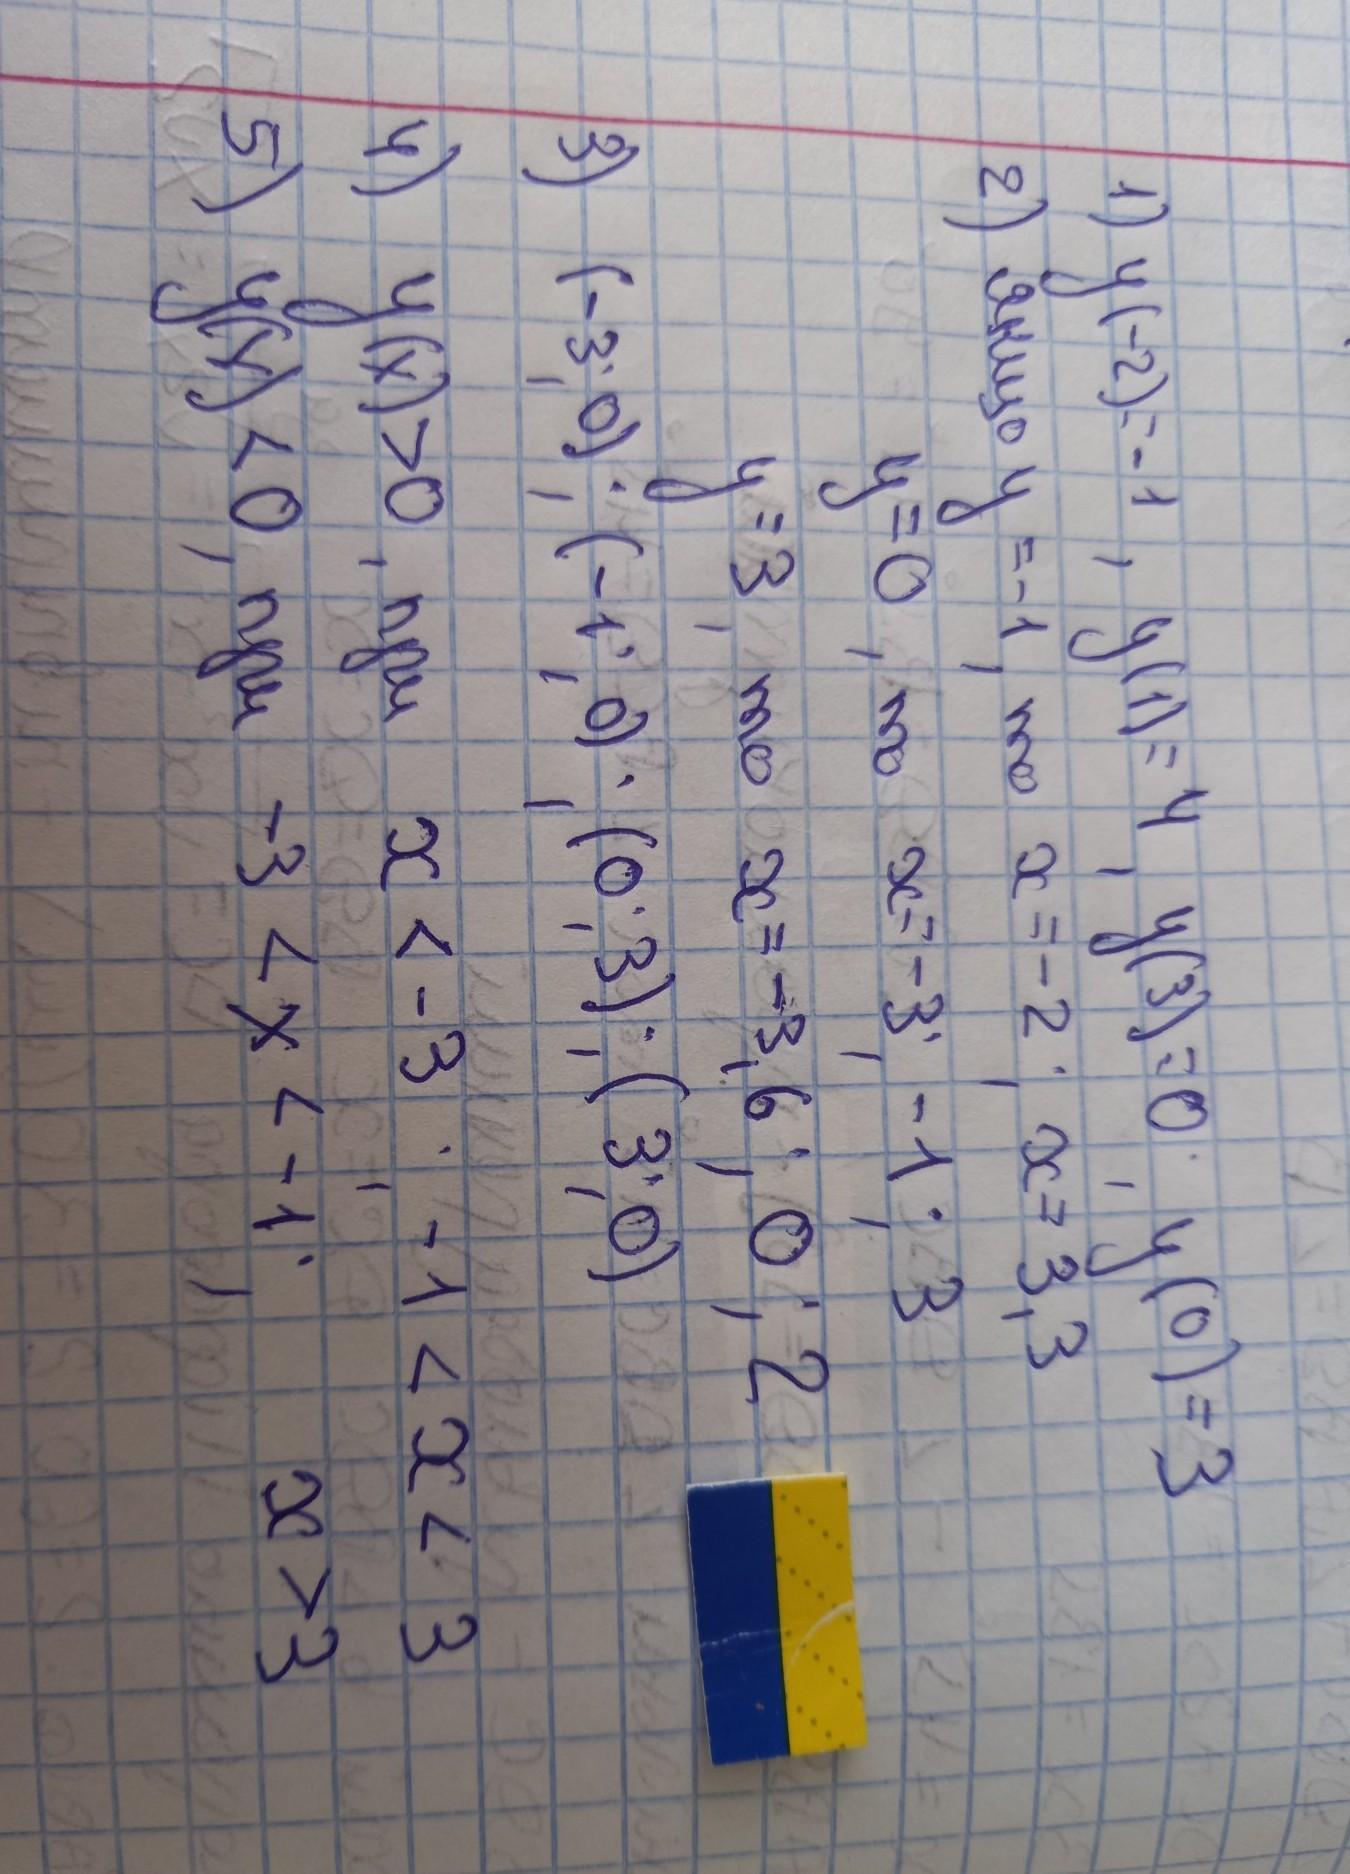 1) y(-2)=-1, y(1)=4, y(3)=0; y(0)=3
2) якщо y=-1, то x=-2; x=3,3
y=0, то x=-3; -1; 3
y=3, то x=-3,6; 0; 2
3) (-3;0); (-1;0); (0;3); (3;0)
4) y(x)>0, при x<-3; -1<x<3
5) y(x)<0, при -3<x<-1; x>3